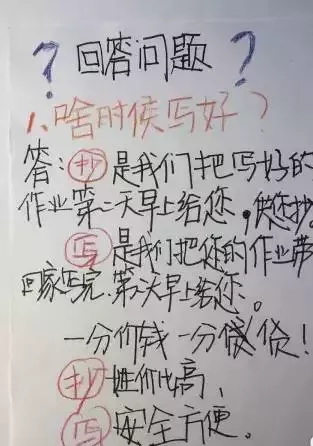 ? 回答问题 ?
1、啥时候写好?
答:抄是我们把写好的
作业第二天早上给您,供您抄。
写是我们把您的作业带
回家写完,第二天早上给您。
一分价钱一分货!
抄性价比高,
写安全方便。